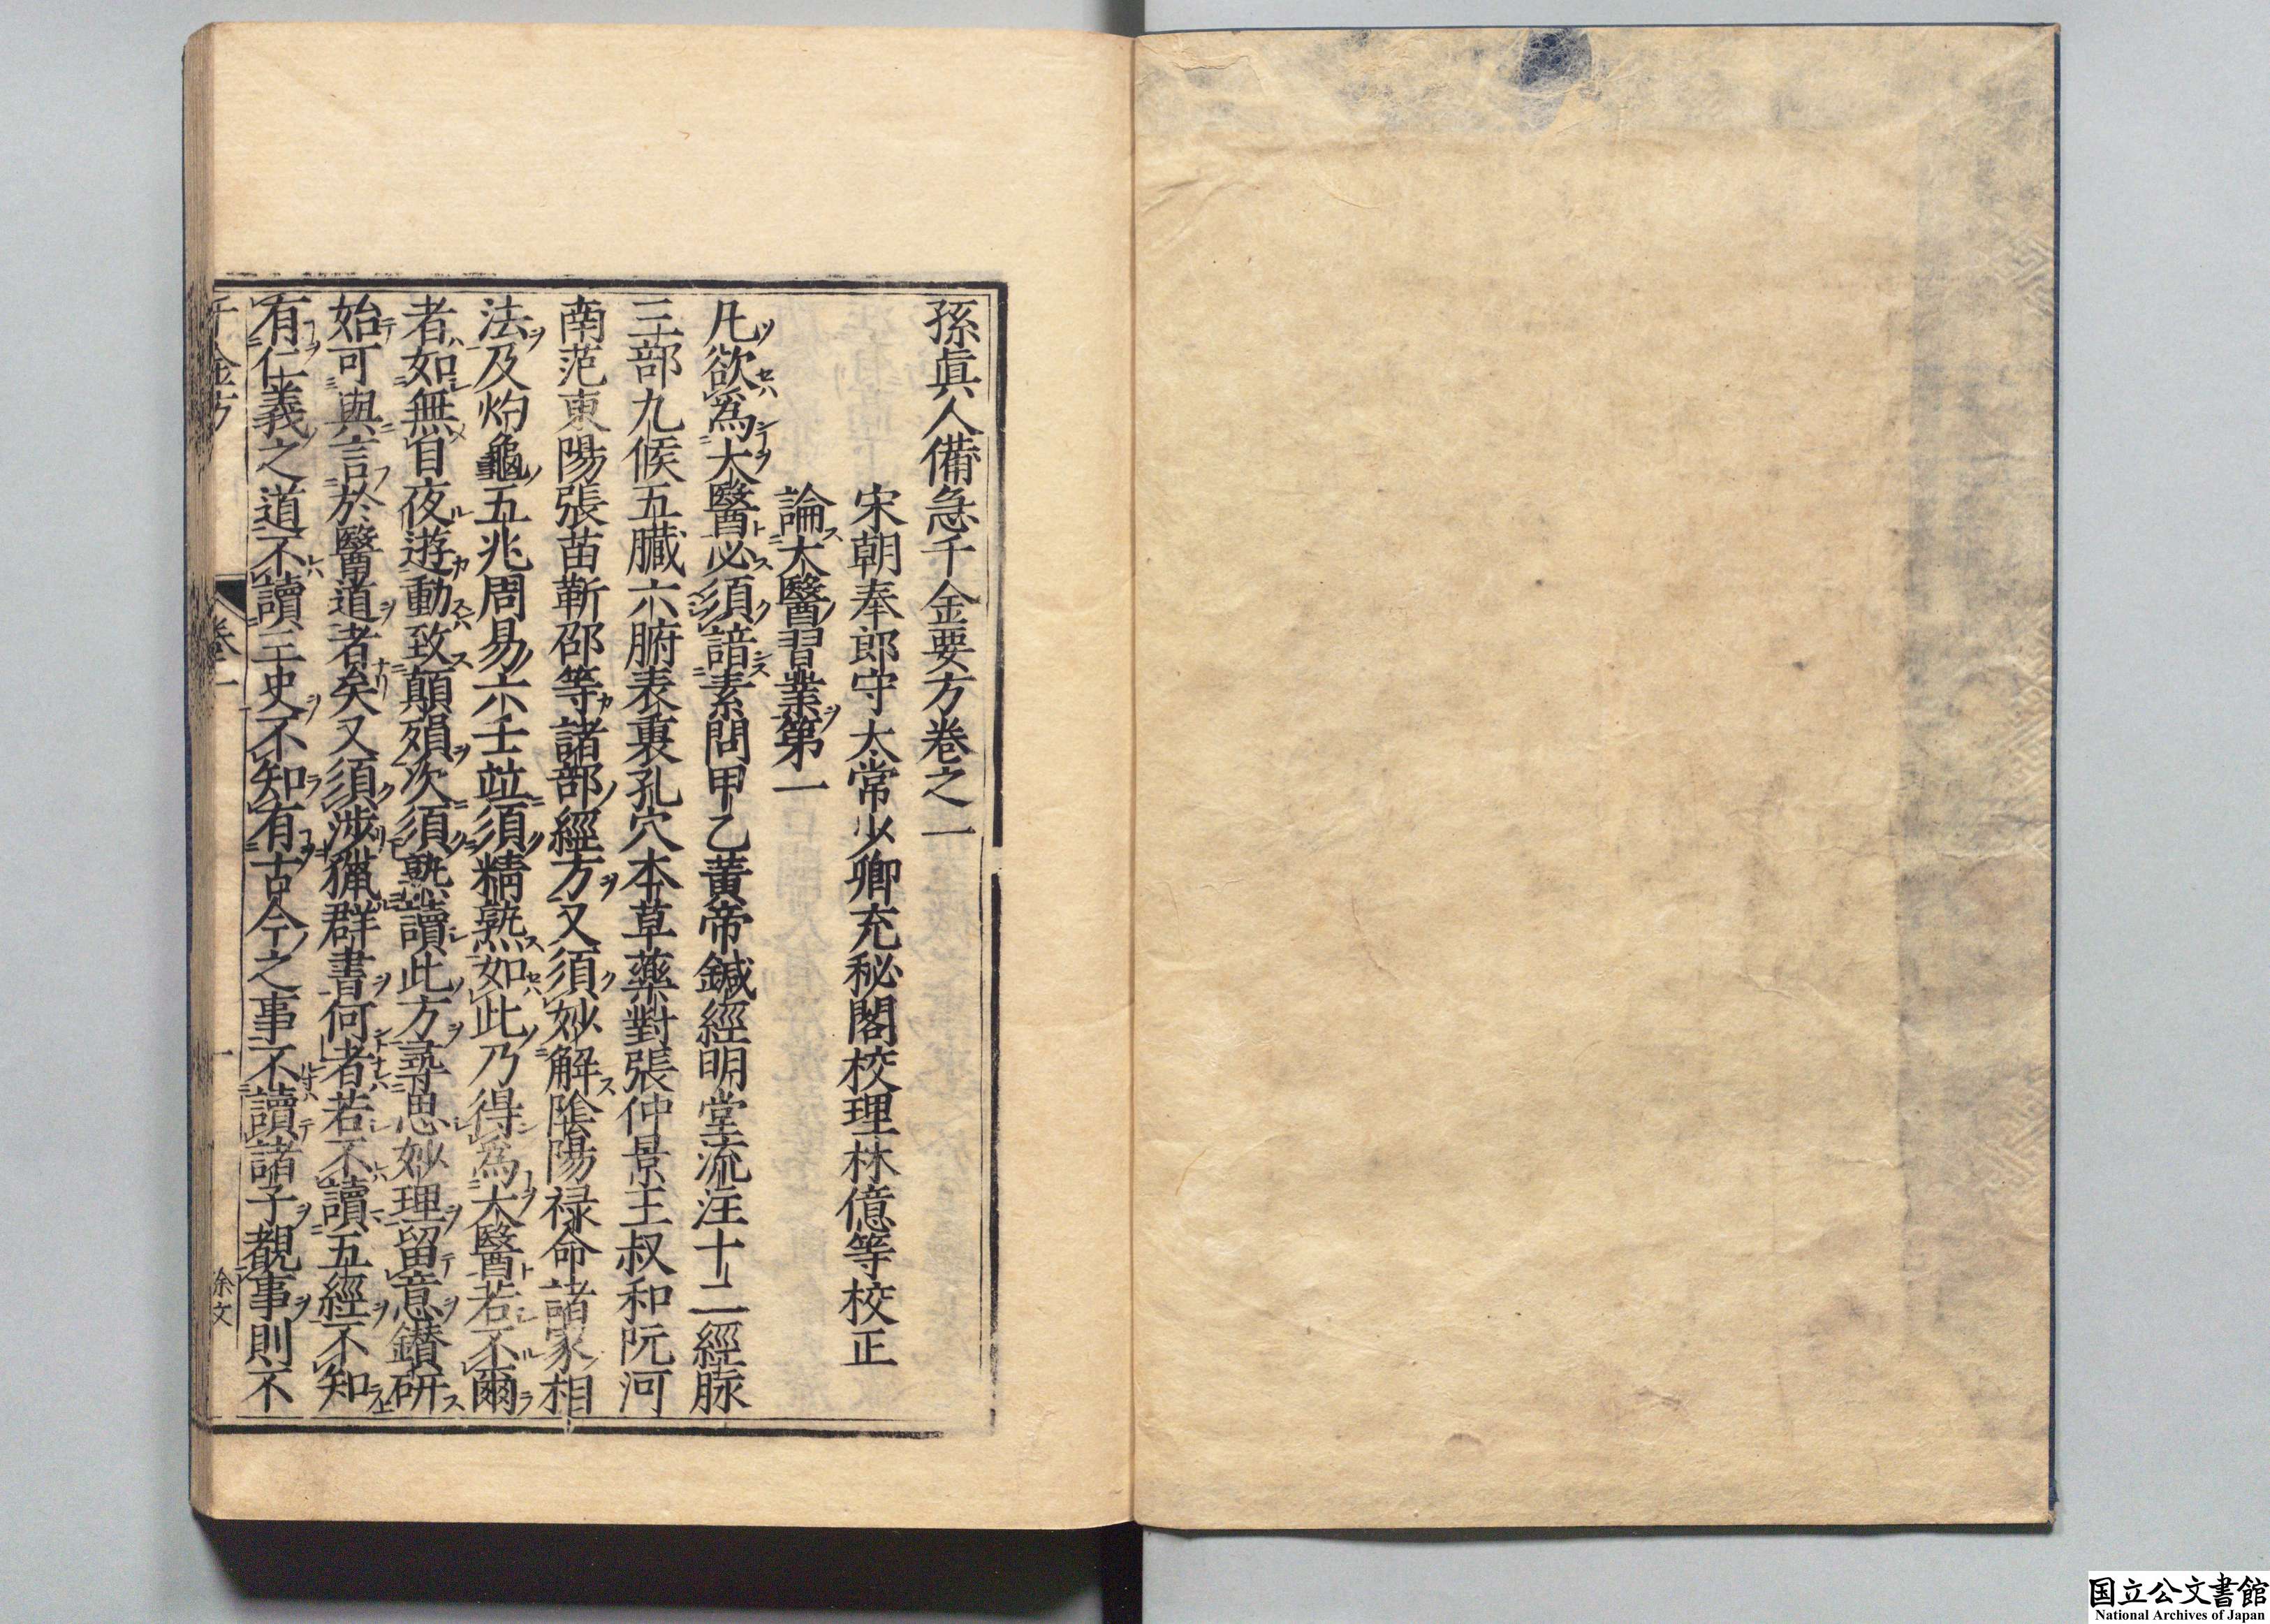 孫眞人備急千金要方卷之一
宋朝奉郎守太常少卿充秘閣校理林億等校正
論大醫習業第一
凡欲爲大醫必須諳素問甲乙黃帝鍼經明堂流注十二經脉
三部九候五臟六腑表裏孔穴本草藥對張仲景王叔和阮河
南范東陽張苗靳邵等諸部經方又須妙解陰陽禄命諸家相
法及灼龜五兆周易六壬竝須精熟如此乃得爲大醫若不爾
者如無目夜遊動致顛殞次須熟讀此方尋思妙理留意鑚研
始可與言於醫道者矣又須涉獵群書何者若不讀五經不知
有仁義之道不讀三史不知有古今之事不讀諸子覩事則不
千金方 卷一 一 徐文
国立公文書館
National Archives of Japan